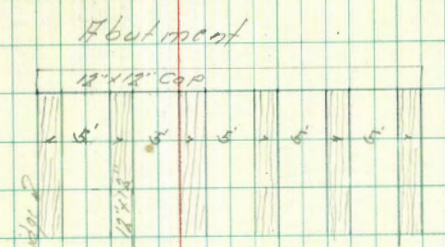 Abutment
12"x12" Cap
5' 5' 5' 5' 5'
12"x12"